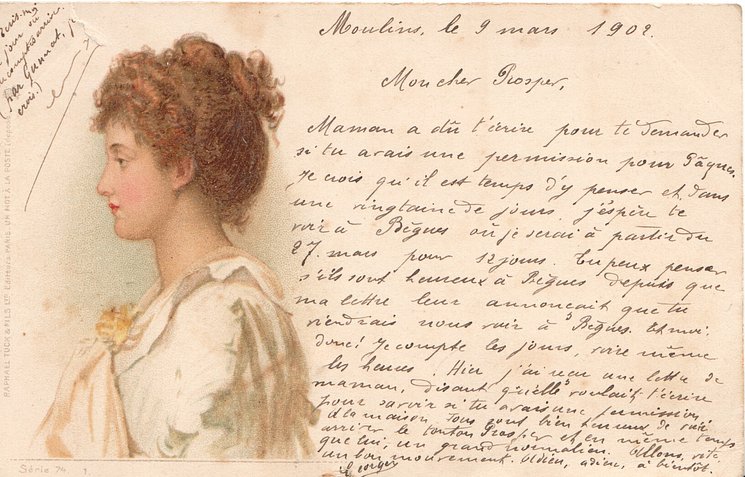 Moulins, le 9 mars 1902.
Mon cher Prosper,
Maman a dû t'écrire pour te demander
si tu avais une permission pour Pâques.
Je crois qu'il est temps d'y penser et, dans
une vingtaine de jours j'espère te
voir à Bègues où je serai à partir du
27. mars pour 12 jours. Tu peux penser
s'ils sont heureux à Bègues depuis que
ma lettre leur annonçait que tu
viendrais nous voir à Bègues. Et moi
donc! Je compte les jours, voire même
les heures. Hier j'ai reçu une lettre de
maman, disant qu'elle voulait t'écrire
pour savoir si tu avais une permission
à la maison. Tous sont bien heureux de voir
arriver le tonton Prosper et en même temps
que lui, un grand normalien. Allons, vite
un bon mouvement. Adieu, adieu, à bientôt.
Georges
jour où
comptes arriver
(par Gannat, je
crois.)
RAPHAEL TUCK & FILS LTD Editeurs PARIS. UN MOT A LA POSTE
Série 74